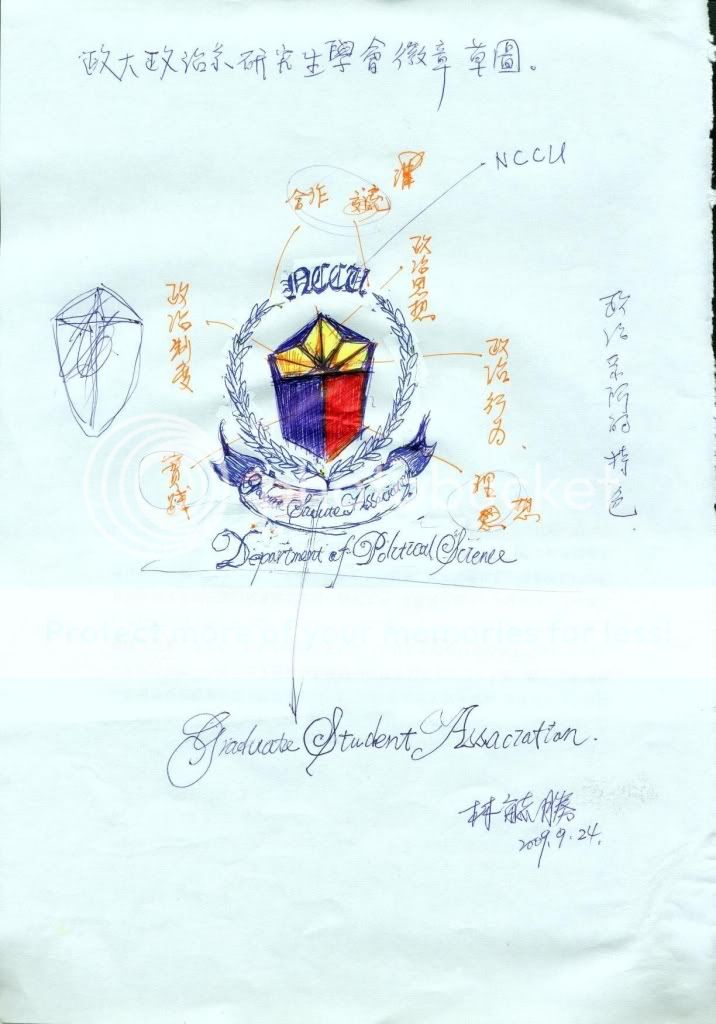 政大政治系研究生學會徽章草圖。
NCCU
合作 交流
政治思想
NCCU
政治制度
政治行為.
政治系所的特色.
實踐
理想
Department of Political Science
Protect more of your memories for less!
Graduate Student Assaciation.
林毓勝
2009.9.24.